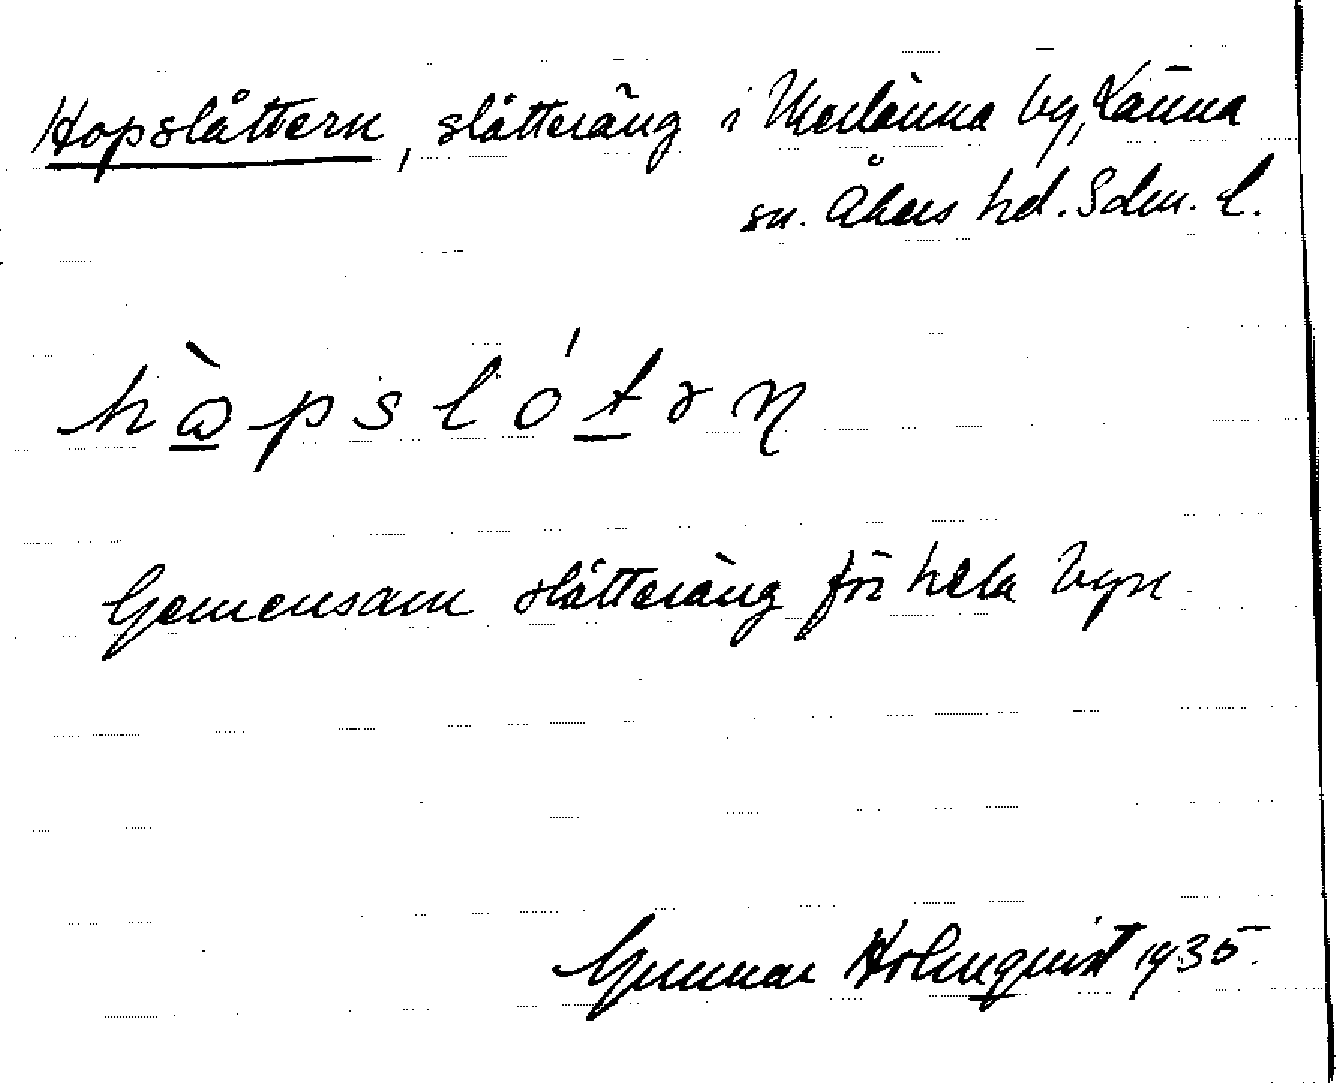 Hopslåttern, slåtteräng i Merlänna by, Länna
sn. Åkers hd. Sdm. L.
hàpslótrn
Gemensam slåtteräng för hela byn
Gunnar Holmquist 1935.